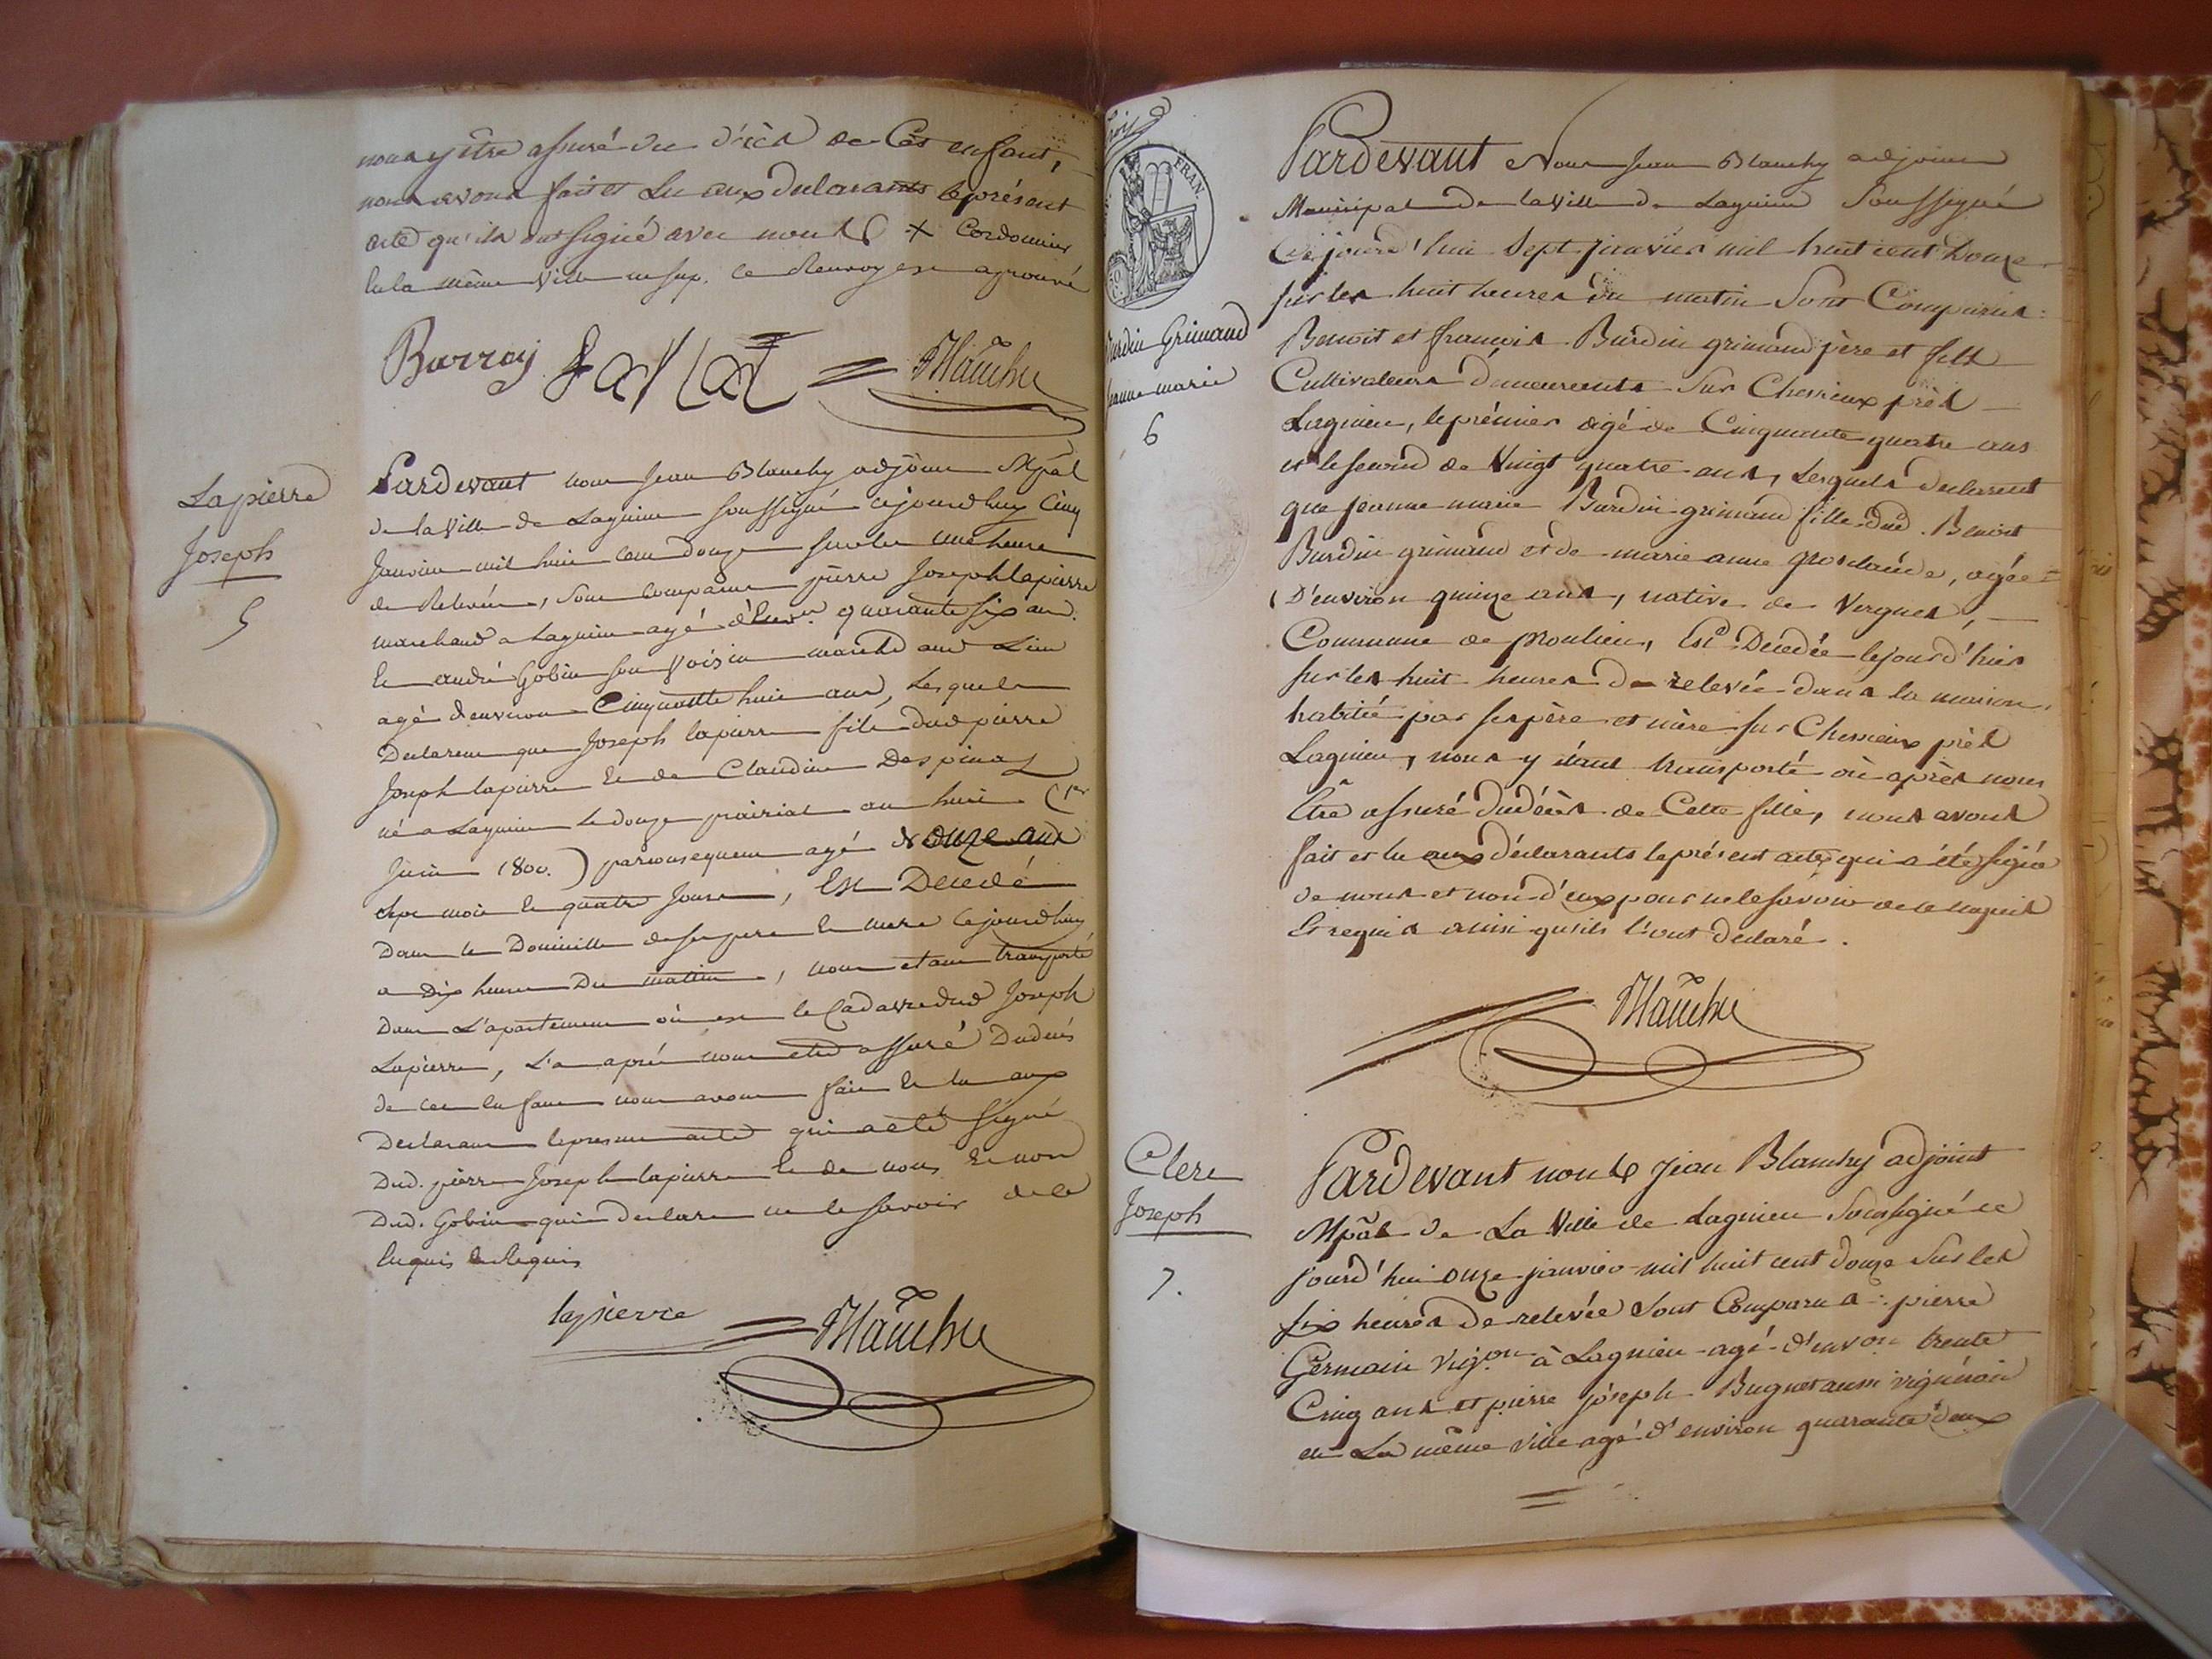 nous y être assuré du décès de Cet enfant,
nous avons fait et Lu aux declarants le présent
acte qu'ils ont signé avec nous × Cordonnier
en la même Ville ce renvoy est aprouvé
Barroy
Blanchy
Lapierre
Joseph
5
Pardevant nous Jean Blanchy adjoint Mpal
de la Ville de Lagnieu soussigné cejourd'huy Cinq
Janvier mil huit cent douze sur les une heure
de Relevée, sont comparus pierre Joseph lapierre
marchand a Lagnieu agé d'Env.on quarante six ans
Et andré Gobin son voisin marchd aud Lieu
agé denviron Cinquante huit ans, Lesquels
Declarent que Joseph lapierre fils dud pierre
Joseph lapierre Et de Claudine Despinas
né a Lagnieu Le douze prairial an huit (1er
Juin 1800.) par consequent agé de onze ans
sept mois Et quatre Jours, Est Decedé
Dans le Domicille de ses pere Et mere Cejourdhuy
a Dix heures Du mattin, nous etant transporté
Dans L'apartement où est le Cadavre dud Joseph
Lapierre, Et apres nous etre assuré Du décès
de cet Enfant nous avons fait Et lu aux
Declarants le present acte qui a eté signé
Dud. pierre Joseph lapierre Et de nous Et non
Dud. Gobin qui a declaré ne le savoir de ce
Enquis Et Requis
lapierre
Blanchy
FRAN.
Burdin Grimaud
Jeanne marie
6
Pardevant Nous Jean Blanchy adjoint
Municipal de la Ville de Lagnieu Soussigné
Cejourd'hui Sept janvier mil huit cent douze
sur les huit heures du matin Sont Comparus:
Benoit et françois Burdin grimaud père et fils
Cultivateurs demeurants Sur Chessieux près
Lagnieu, le prémier agé de Cinquante quatre ans
et le second de Vingt quatre ans, Lesquels déclarent
que jeanne marie Burdin grimaud fille dud. Benoit
Burdin grimaud et de marie anne, agée
D'environ quinze ans, native de Vergnes,
Commune de, Est Décédée le jour d'hier
sur les huit heures de relevée dans la maison
habitée par ses père et mère sur Chessieux près
Lagnieu, nous y étant transporté où après nous
Etre assuré du décès de Cette fille, nous avons
fait et lu aux déclarants le présent acte qui a été signé
de nous et non d'eux pour ne le savoir de ce enquis
Et requis ainsi qu'ils l'ont déclaré.
Blanchy
Clerc
Joseph
7.
Pardevant nous Jean Blanchy adjoint
Mpal de La Ville de Lagnieu Soussigné ce
jourd'hui onze janvier mil huit cent douze Sur les
six heures de relevée Sont Comparus: pierre
Germain Vig.on à Lagnieu agé d'env.on trente
Cinq ans et pierre joseph Bugnet aussi vigneron
en La même ville agé d'environ quarante deux